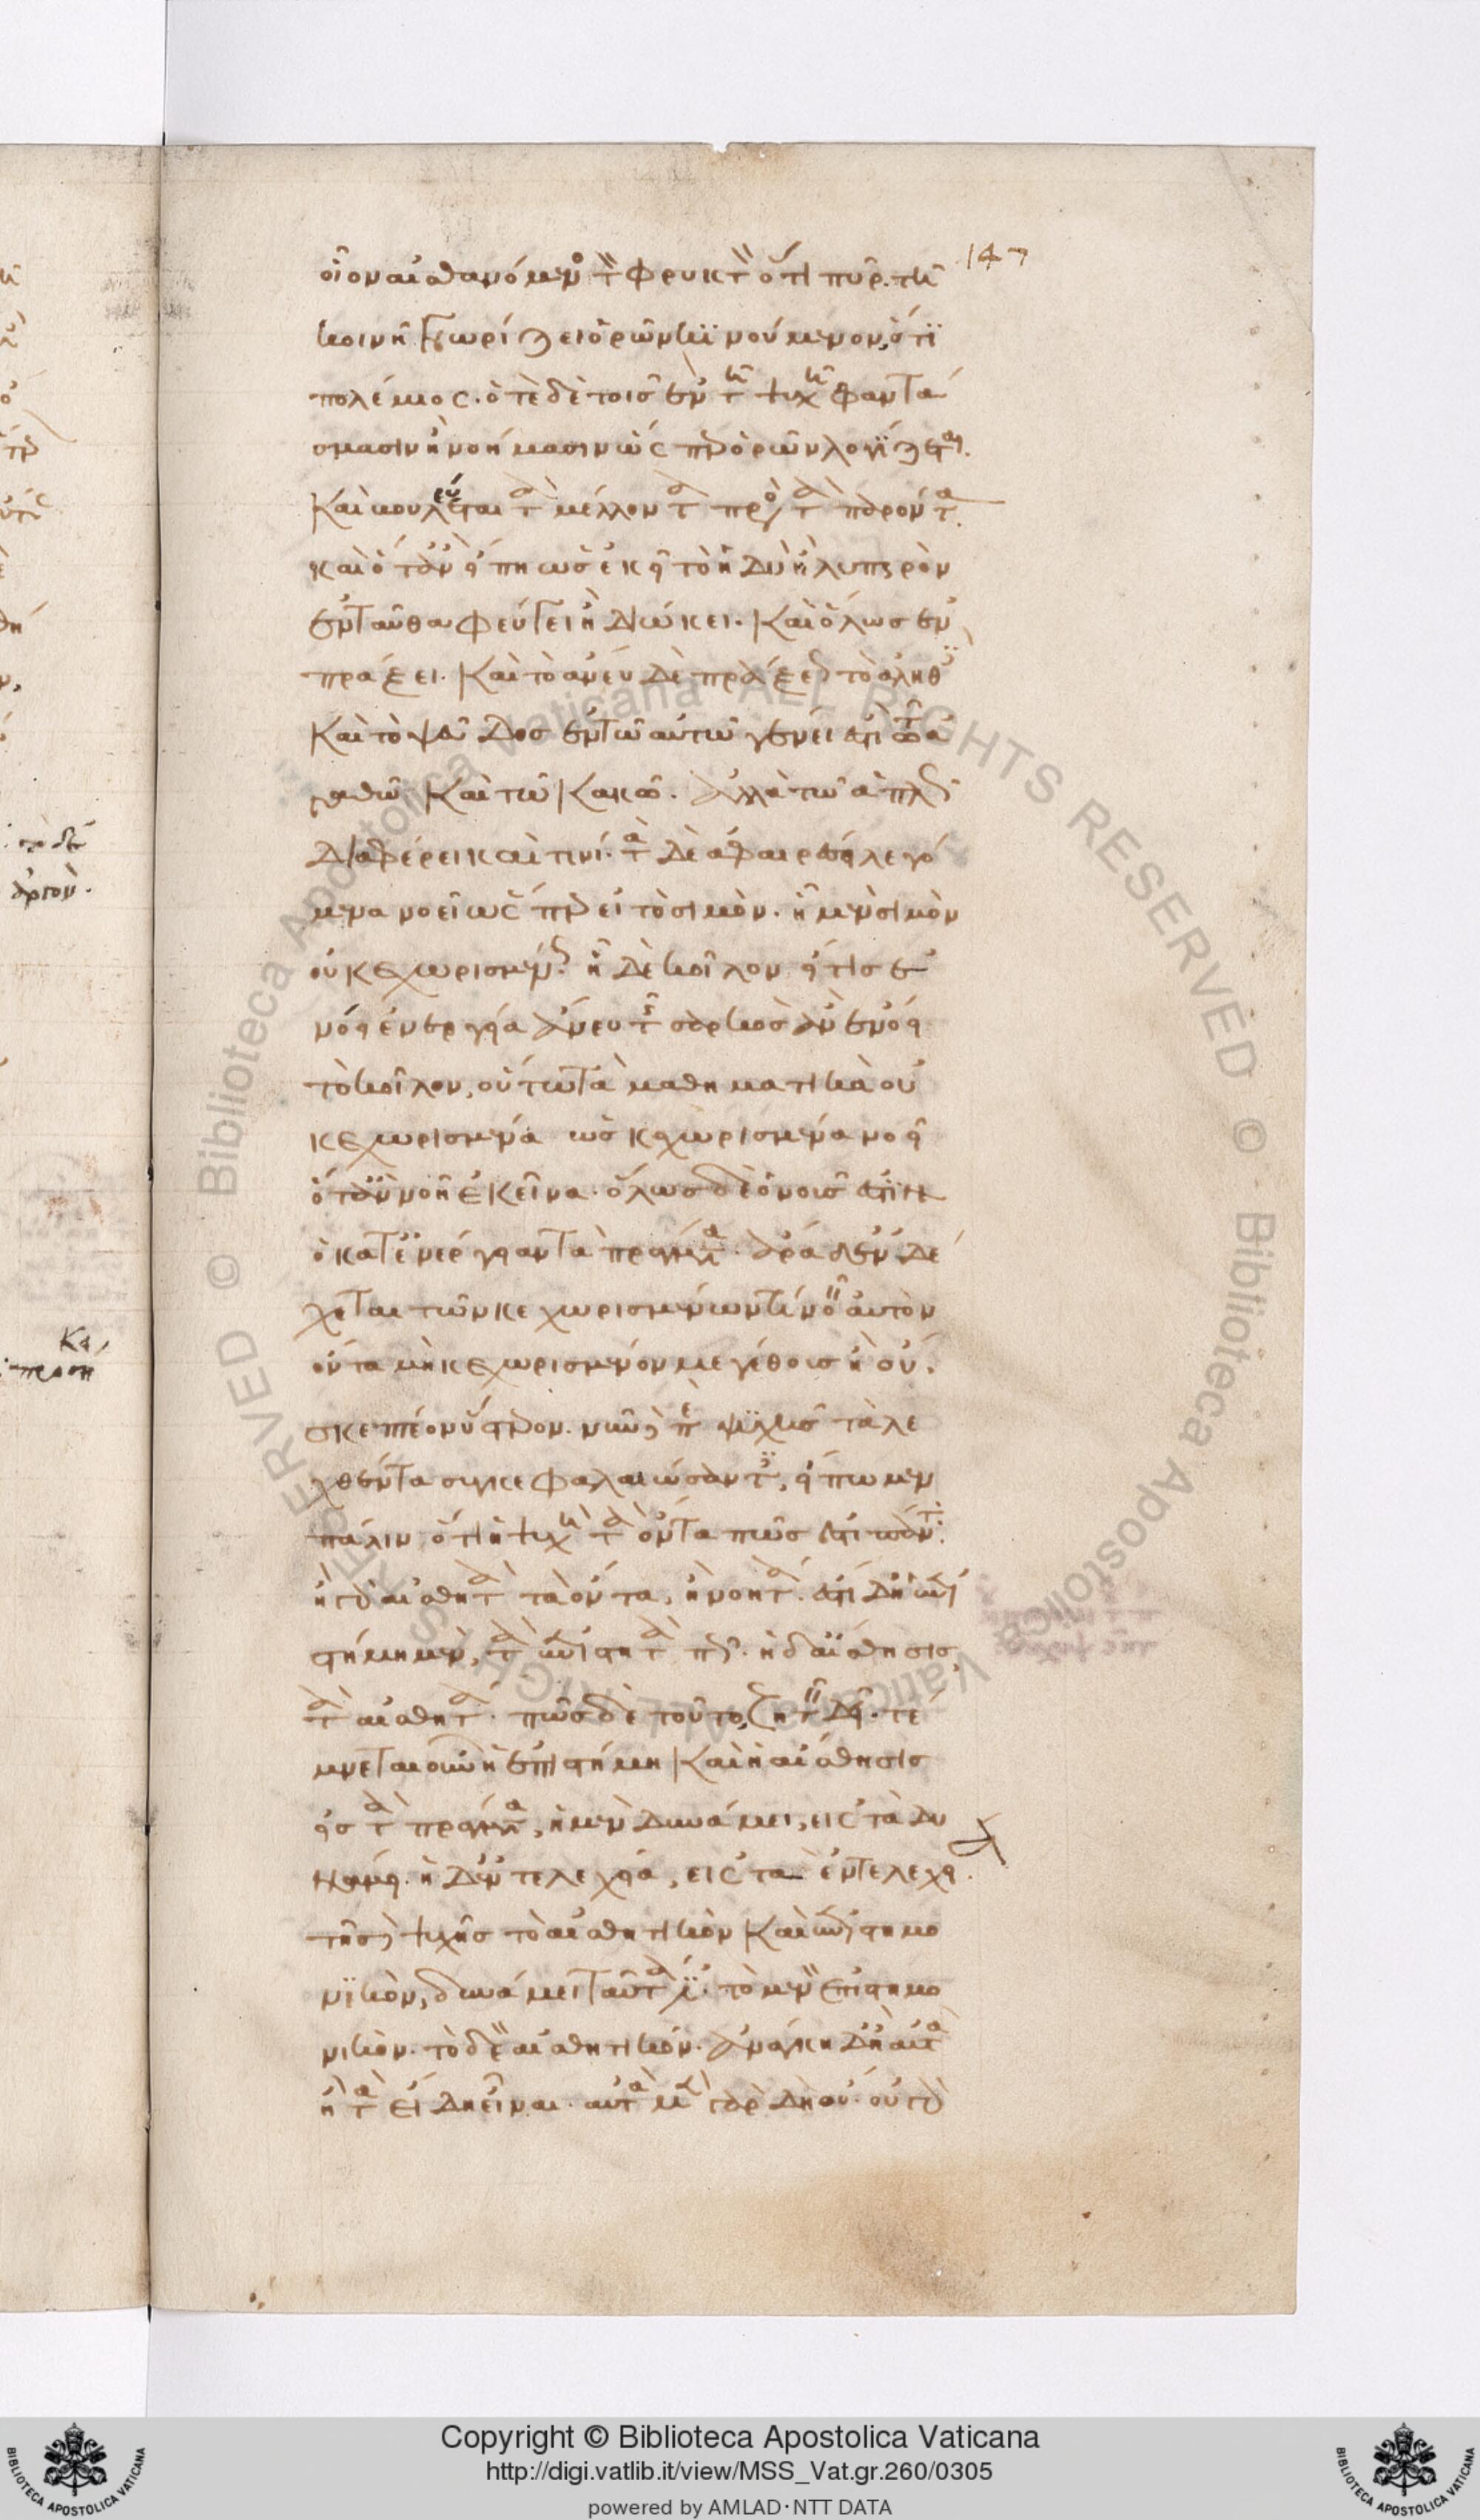 οἷον αἰσθανόμενος τὸν φρυκτὸν ὅτι πῦρ. τῆ
κοινῆ γνωρίζει ὁρῶν κινούμενον, ὅτι
πολέμιος. ὁτὲ δὲ τοῖς ἐν τῆ ψυχῆ φαντά
σμασιν ἢ νοήμασιν ὥσπερ ὁρῶν λογίζεται.
καὶ βουλεύεται τὰ μέλλοντα πρὸς τὰ παρόντα.
καὶ ὅταν εἴπη ὡς ἐκεῖ τὸ ἡδὺ ἢ λυπηρὸν
ἐνταῦθα φεύγει ἢ διώκει. καὶ ὅλως ἐν
πράξει. καὶ τὸ ἄνευ δὲ πράξεως τὸ ἀληθὲς
καὶ τὸ ψεῦδος ἐν τῶ αὐτῶ γένει ἐστὶ τῶ ἀ
γαθῶ καὶ τῶ κακῶ. ἀλλὰ τῶ ἁπλῶς
διαφέρει καὶ τινί. τὰ δὲ ἀφαιρέσει λεγό
μενα νοεῖ ὥσπερ εἰ τὸ σιμὸν. ἧ μὲν σιμὸν
οὐ κεχωρισμένως. ἧ δὲ κοῖλον εἴ τις ἐ
νόει ἐνεργεία ἄνευ τῆς σαρκὸς ἂν ἐνόει
τὸ κοῖλον, οὕτω τὰ μαθηματικὰ οὐ
κεχωρισμένα ὡς κεχωρισμένα νοεῖ
ὅταν νοῆ ἐκεῖνα. ὅλως δὲ ὁ νοῦς ἐστὶν
ὁ κατ' ἐνέργειαν τὰ πράγματα. ἆρα δ' ἐνδέ
χεται τῶν κεχωρισμένων τι νοεῖν αὐτὸν
ὄντα μὴ κεχωρισμένον μεγέθους ἢ οὔ.
σκεπτέον ὕστερον. νῦν δὲ περὶ ψυχῆς τὰ λε
χθέντα συγκεφαλαιώσαντες, εἴπωμεν
πάλιν ὅτι ἡ ψυχὴ τὰ ὄντα πῶς ἐστι πάντα.
ἢ γὰρ αἰσθητὰ τὰ ὄντα, ἢ νοητά. ἔστι δ' ἡ ἐπι
στήμη μὲν, τὰ ἐπιστητὰ πως. ἡ δ' αἴσθησις,
τὰ αἰσθητά. πῶς δὲ τοῦτο, ζητεῖν δεῖ. τέ
μνεται οὖν ἡ ἐπιστήμη καὶ ἡ αἴσθησις
εἰς τὰ πράγματα, ἡ μὲν δυνάμει, εἰς τὰ δυ
νάμει. ἡ δ' ἐντελεχεία, εἰς τὰ ἐντελεχεία.
τῆς δὲ ψυχῆς τὸ αἰσθητικὸν καὶ ἐπιστημο
νικὸν, δυνάμει ταῦτά ἐστι. τὸ μὲν ἐπιστημο
νικὸν. τὸ δὲ αἰσθητικόν. ἀνάγκη δ' ἢ αὐτὰ
ἢ τὰ εἴδη εἶναι. αὐτὰ μὲν γὰρ δὴ οὔ. οὐ γὰρ
147